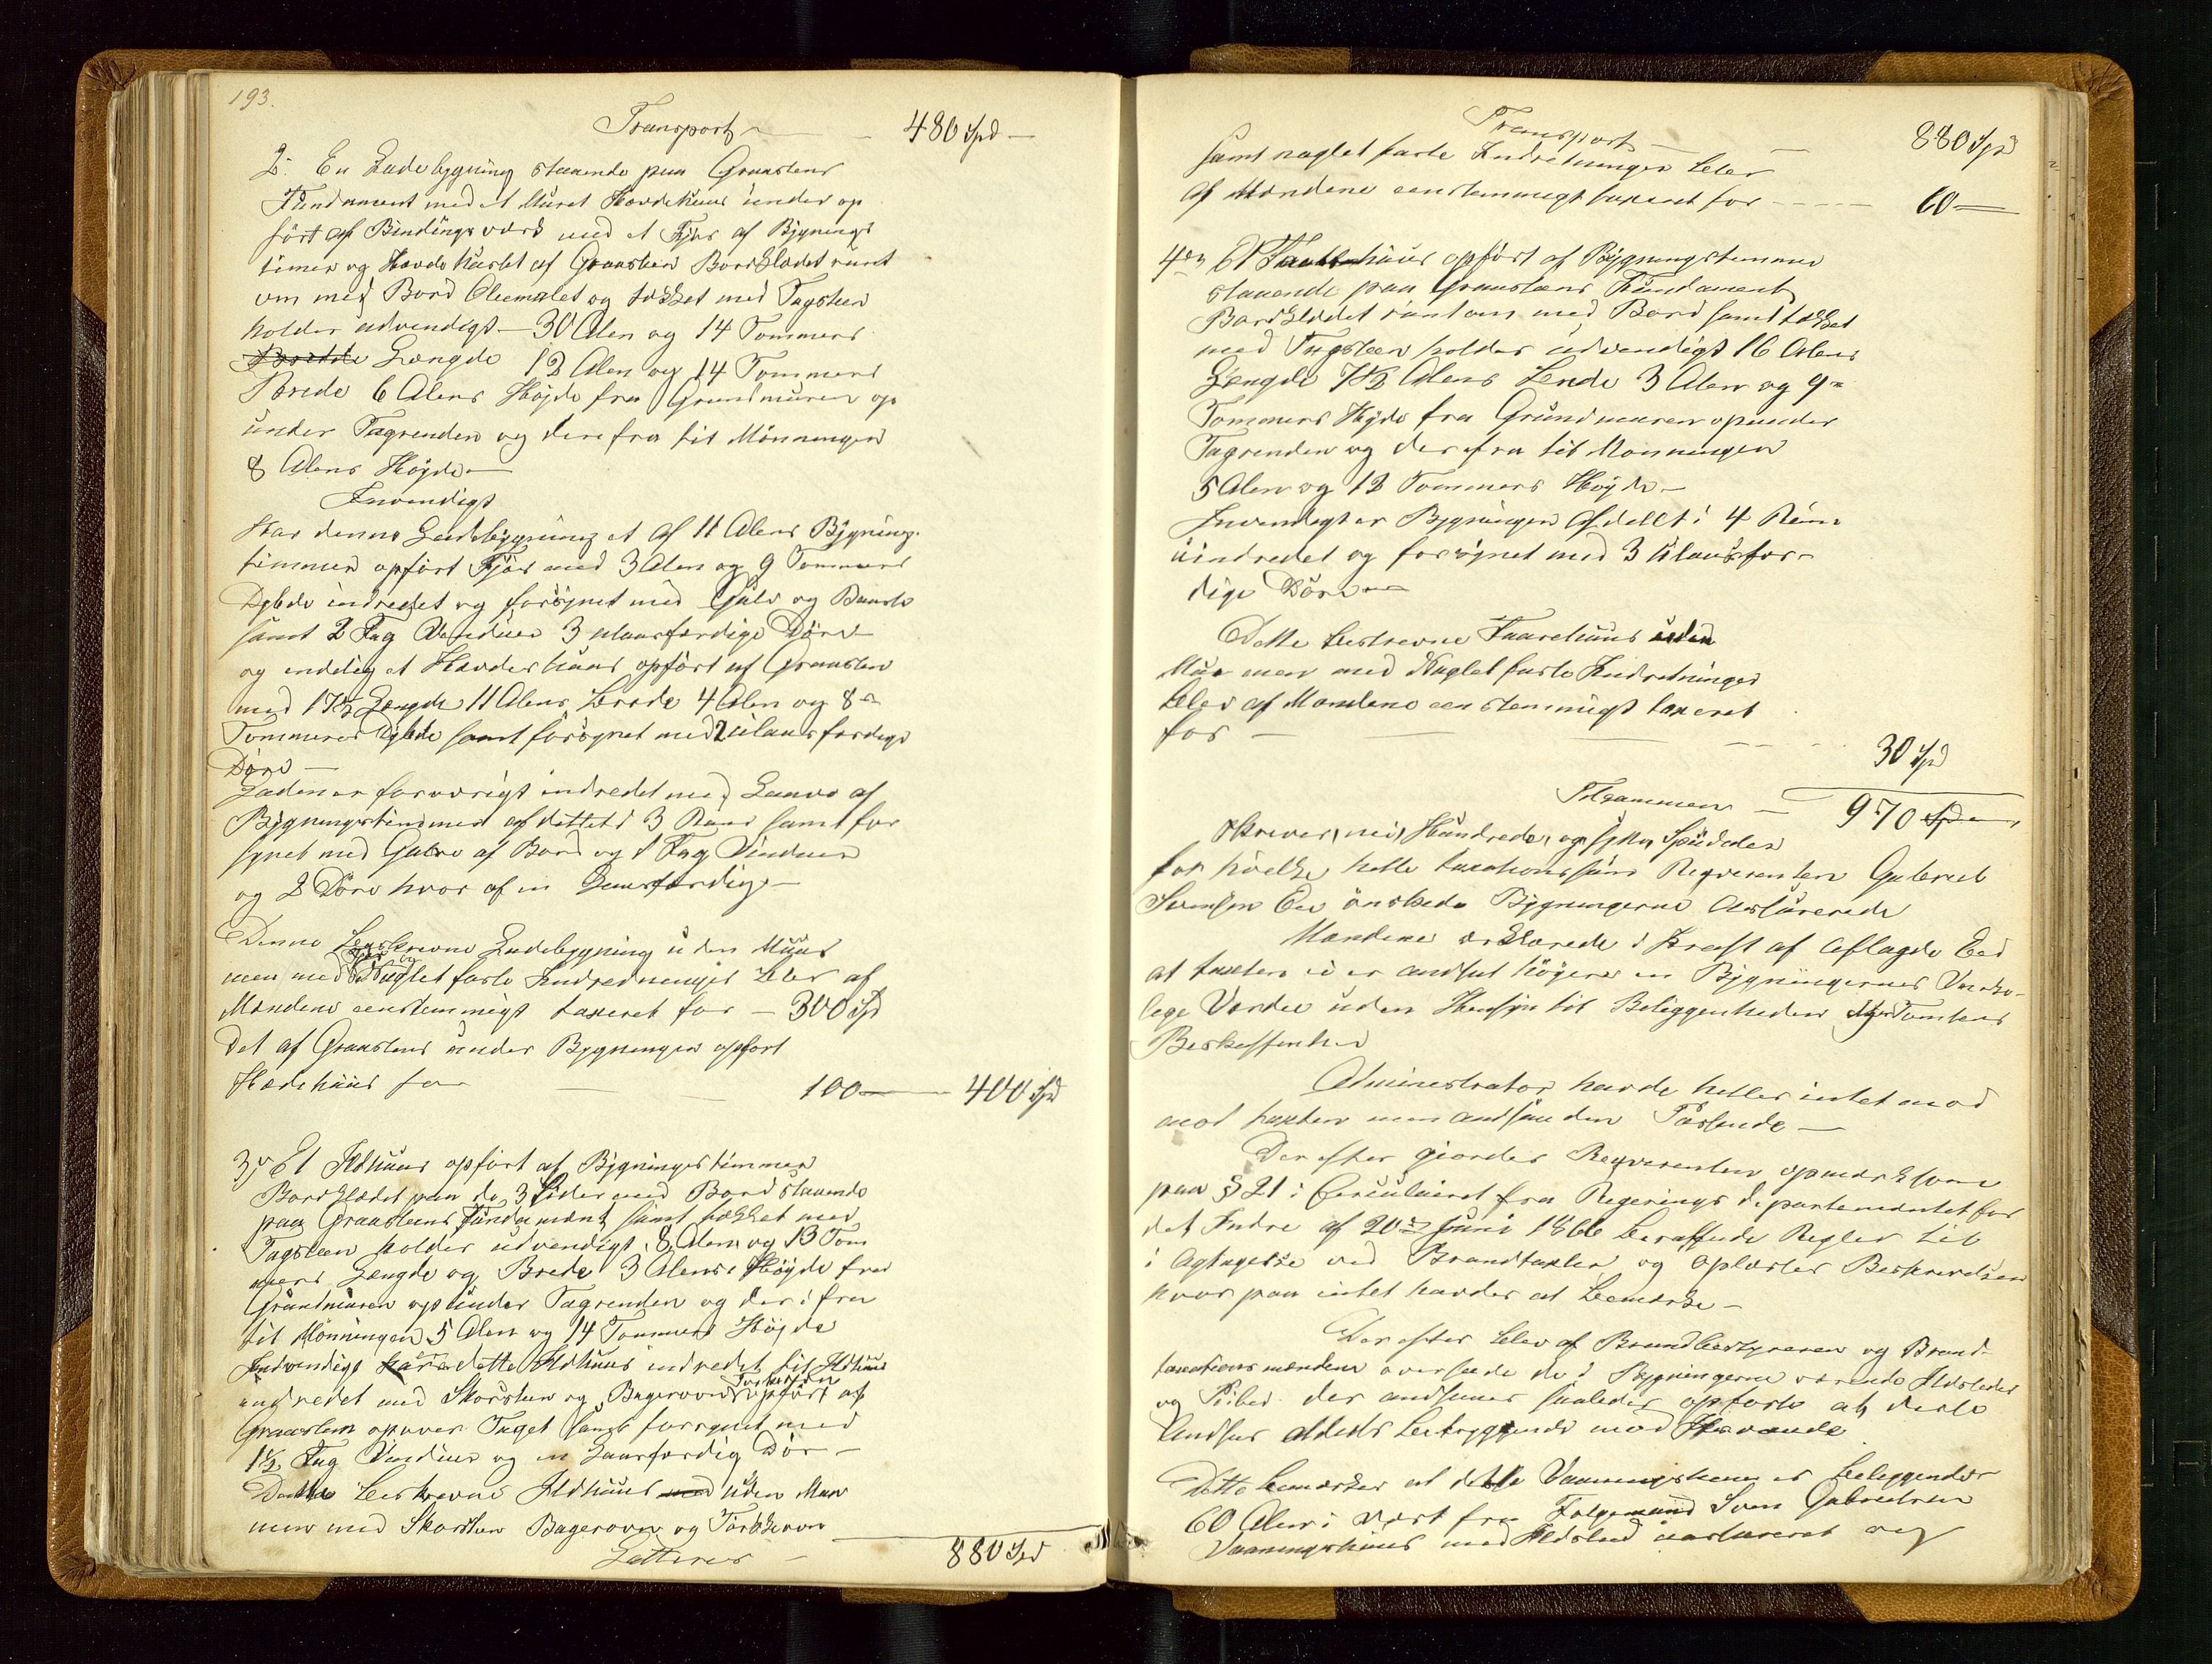 193.
Transport — 480 Spd —
2. En Ladebygning staaende paa Graastens
Fundament med et Muret Havdehuus under op
ført af Bindingsværk med et Fjøs af Bygnings
timmer og Havdehuset af Graasten Bordklædet runt
om med Bord Oliemalet og tækket med Tagsteen
holder udvendigt — 30 Alen og 14 Tommers
Bredde Længde 12 Alen og 14 Tommers
Brede 6 Alens Højde fra Grundmuren op
under Tagrenden og derefra til Mønningen
8 Alens Højde —
Invendigt
Har denne Ladebygning et af 11 Alens Bygning
timmer opført Fjøs med 3 Alen og 9 Tommers
Dybde indredet og forsynet med Gulv og Baase
samt 2 Fag Vinduer 3 ulaasfærdige Døre
og endelig et Havdehuus opført af Graasten
med 17½ Længde 11 Alens Brede 4 Alen og 8
Tommers Dybde samt forsynet med 2 ulaasfærdige
Døre —
Laden er forøvrigt indredet med Laave af
Bygningstimmer afdeelt i 3 Rum samt for
synet med Gulve af Bord og 1 Fag Vinduer
og 2 Døre hvoraf en Laasfærdig —
Denne beskrevne Ladebygning uden Muur
men med Fjøs og Naglefaste Indredninger blev af
Mændene eenstemmigt taxeret for — 300 Spd
Det af Graastens under Bygningen opført
Hædehuus for — 100 — 400 Spd
3, Et Ildhuus opført af Bygningstimmer
Bordklædet paa de 3 Sider med Bord staaende
paa Graasteens Fundament samt tækket med
Tagsteen holder udvendigt 8 Alen og 13 Tom
mers Længde og Brede 3 Alens Højde fra
Grundmuren op under Tagrenden og derifra
til Mønningen 5 Alen og 14 Tommers Højde
Indvendigt er dette Ildhuus indredet til Ildhuus
indredet med Skorsteen og Bagerovn Tørkeovn opført af
Graasteen opover Taget samt forsynet med
1½ Fag Vinduer og en Laasfærdig Dør —
Dette beskrevne Ildhuus med uden Muur
men med Skorsteen Bagerovn og Tørkeovn
Latteres — 880 Spd
Transport — 880 Spd
samt naglefaste Indredninger blev
af Mændene eenstemmigt taxeret for — 60 —
4de Et Faarehuus opført af Bygningstimmer
staaende paa Graasteens Fundament
Bordklædet rundtom med Bord samt tækket
med Tagsteen holder udvendigt 16 Alens
Længde 7½ Alens Brede 3 Alen og 9
Tommers Højde fra Grundmuren opunder
Tagrenden og derefra til Mønningen
5 Alen og 12 Tommers Højde —
Invendigt er Bygningen afdeelt i 4 Rum
uindredet og forsynet med 3 ulaasfær-
dige Døre —
Dette beskrevne Faarehuus uden
Muur men med Naglefaste Indredninger
blev af Mændene eenstemmigt taxeret
for — 30 Spd
Tilsammen — 970 Spd
skriver ni Hundrede og sytti Speciedaler
for hvilke hele taxationssum Requirenten Gabriel
Svensen Eie ønskede Bygningerne Assurerede
Mændene erklærede i Kraft af aflagte Eed
at taxten ei er andsat højere en Bygningernes Virke-
lige Værdie uden Hensyn til Beliggenheden eller Tomtens
Beskaffenhed
Administrator havde heller intet mod
mod taxten men andsaa den Passende —
Derefter gjordes Requirenten opmærksom
paa § 21 i Circulairet fra Regjerings departementet for
det Indre af 20de Juni 1866 beraffende Regler til
i Agtagelse ved Brandtaxter og oplæstes Beskrivelsen
hvorpaa intet havdes at bemærke —
Derefter blev af Brandbestyreren og Brand-
taxationsmændene overseede de i Bygningerne værende Ildsteder
og Piber der ansees saaledes opførte at disse
Andsees aldeles betryggende mod Ildsvaade
Dette bemærkes at dette Vaaningshuus er beliggende
60 Alen i Vest fra Folgemand Sven Gabrielsen
Vaaningshuus med Ildsted assureret og